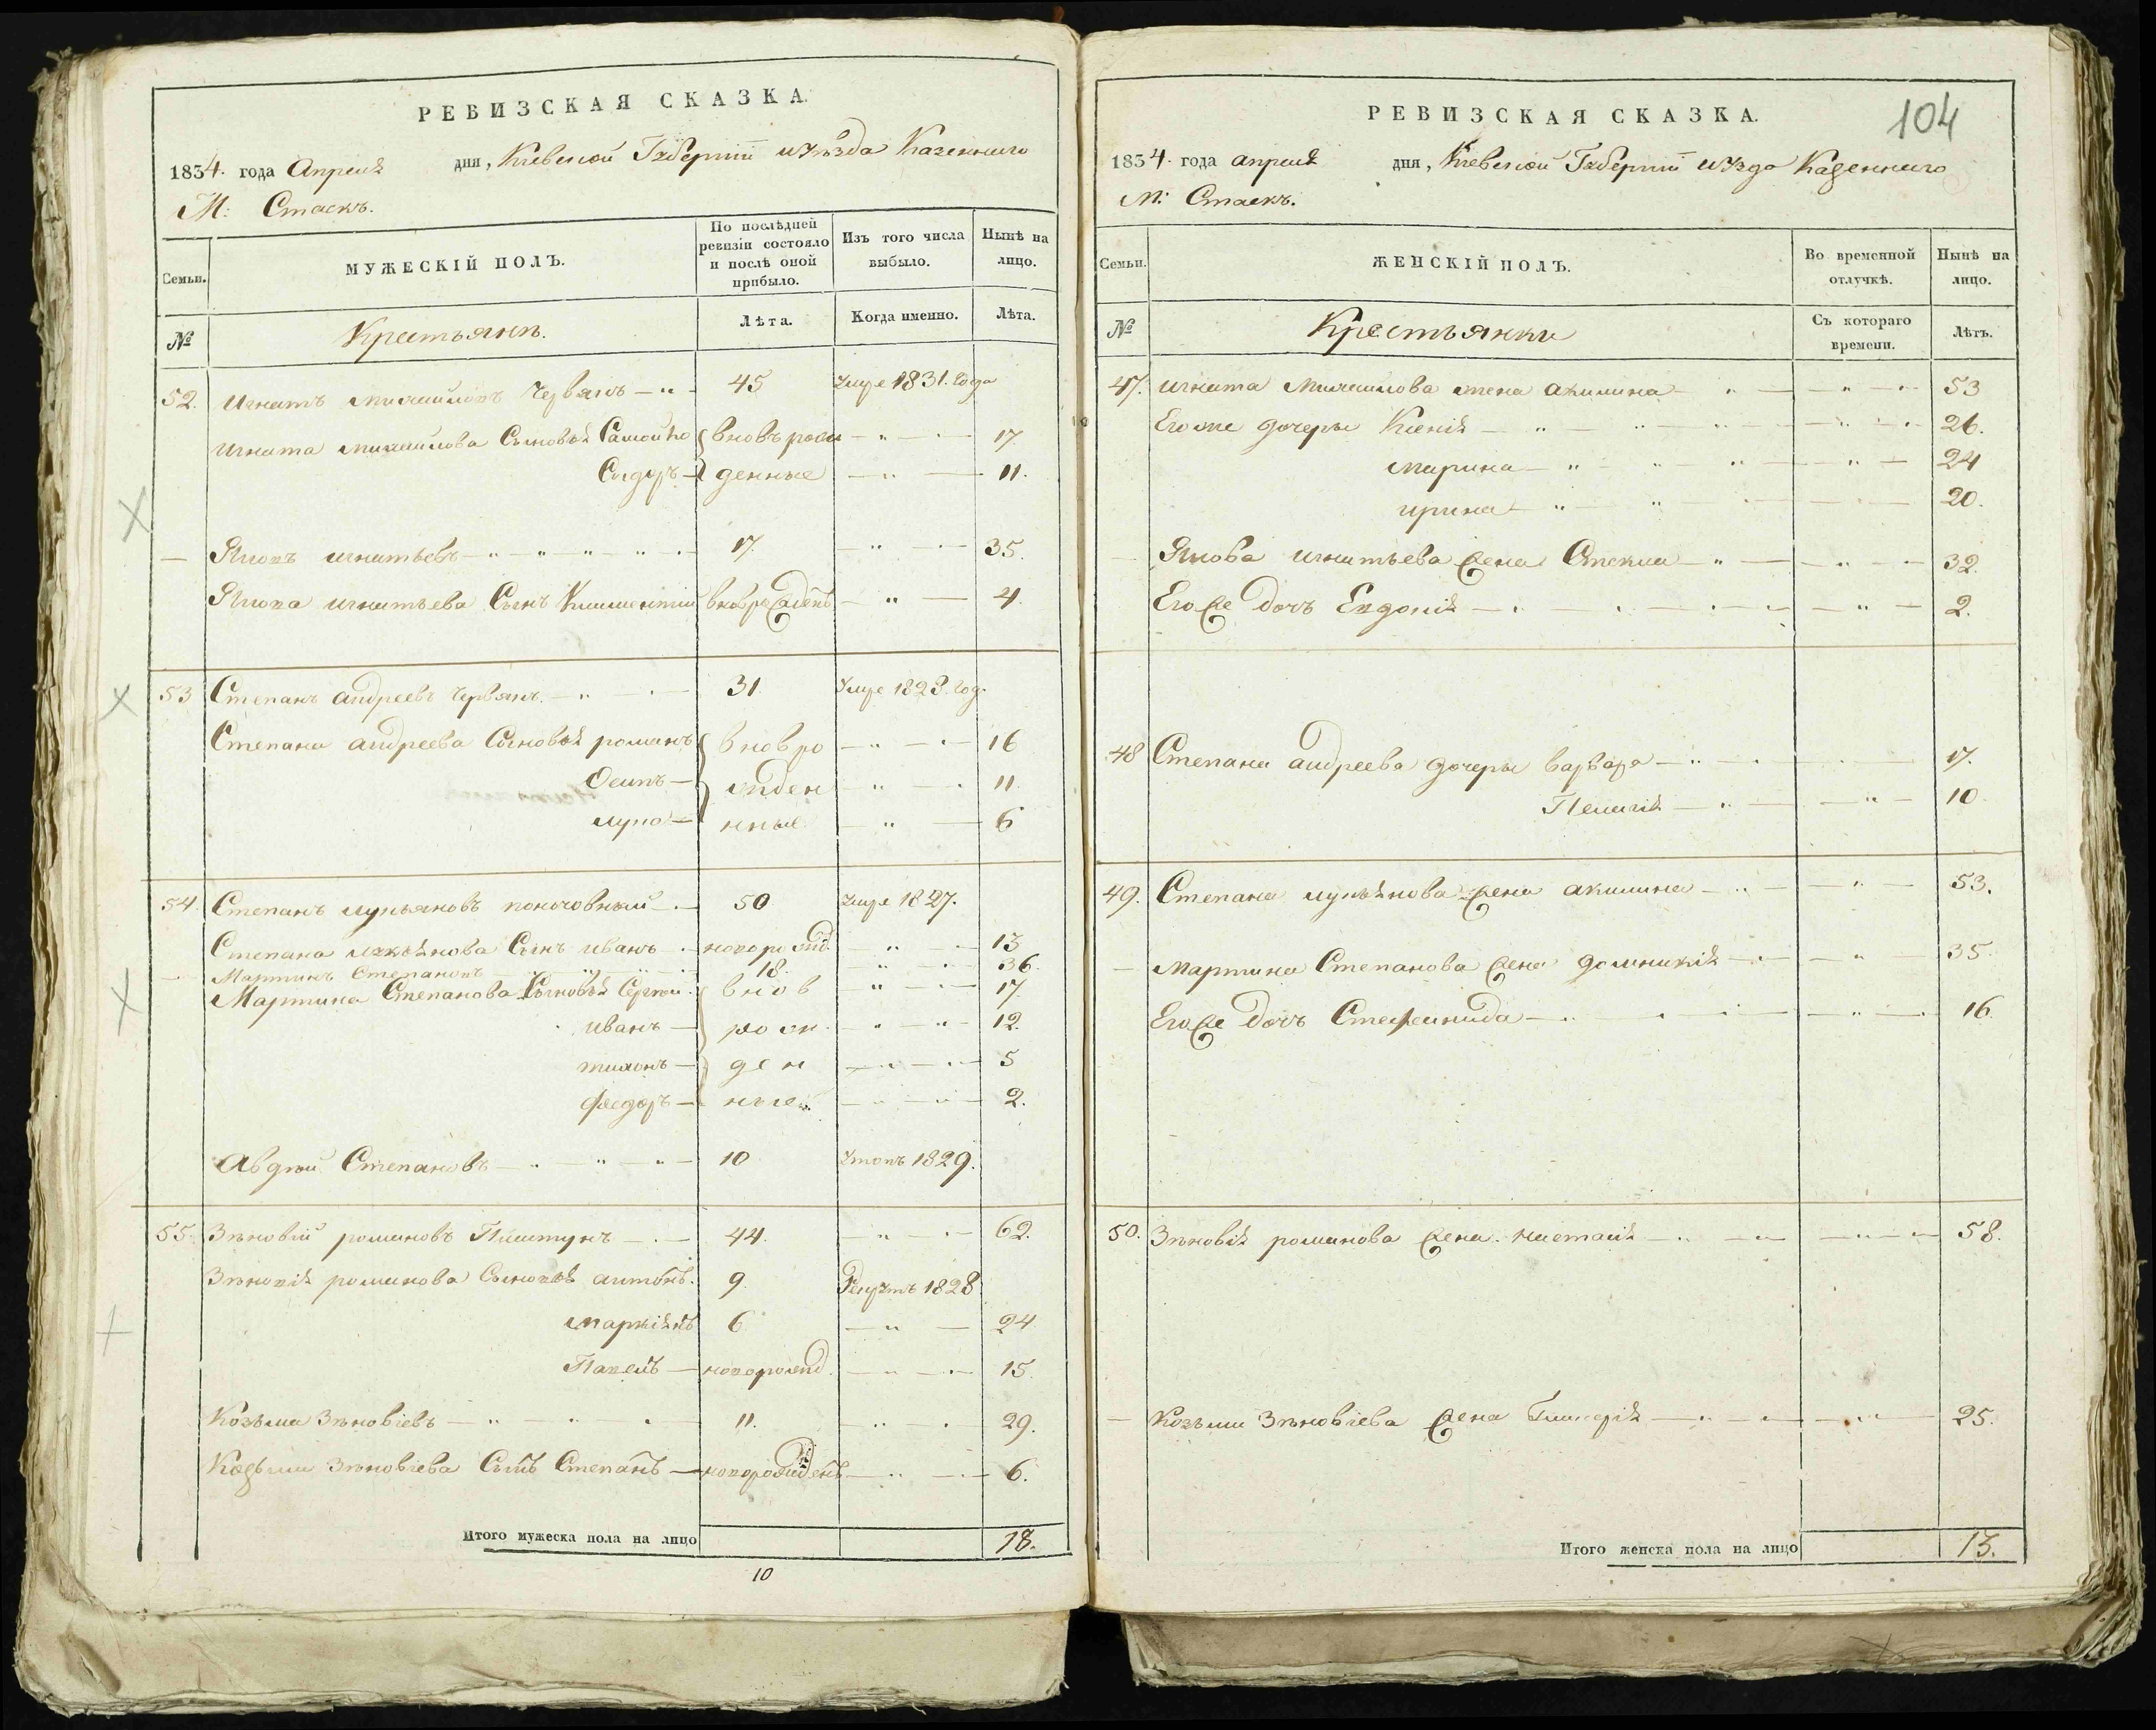 РЕВИЗСКАЯ СКАЗКА.
1834. года Апреля дня, Киевской Губернии и уѣзда Казенного
М: Стаекъ.
Семьи.
МУЖЕСКІЙ ПОЛЪ.
По послѣдней ревизіи состояло и послѣ оной прибыло.
Изъ того числа выбыло.
Нынѣ на лицо.
№
Крестьяне.
Лѣта.
Когда именно.
Лѣта.
52. Игнатъ Михайловъ Червякъ 45 Умре 1831. года
Игната Михайлова Сыновья Самойло вновь рож 17.
Сидоръ денные 11.
Яковъ Игнатьевъ 17. 35.
Якова Игнатьева Сынъ Климентий 4.
53 Степанъ Андреевъ Червякъ 31. Умре 1828. год.
Степана Андреева Сыновья Романъ внов ро 16
Осипъ жден 11
Лука нные 6
54. Степанъ Лукьяновъ 50 Умре 1827.
Степана Лукьянова Сынъ Иванъ новорожд. 13
Мартинъ Степановъ 18. 36.
Мартина Степанова Сыновья Сергѣй внов 17.
Иванъ рож 12.
Тихонъ ден 5
Федоръ ные 2.
Авдѣй Степановъ 10 1829.
55. Зѣновій Романовъ 44. 62.
Зѣновія Романова Сыновья Антонъ. 9. Рекрутъ 1828
Маркіянъ 6 24
Павелъ новорожд. 15.
Козьма Зѣновіевъ 11. 29.
Козьми Зѣновіева Сынъ Степанъ новорожденъ 6.
Итого мужеска пола на лицо 18.
10
104
РЕВИЗСКАЯ СКАЗКА.
1834. года Апреля дня, Киевской Губернии и уѣзда Казенного
М: Стаекъ.
Семьи.
ЖЕНСКІЙ ПОЛЪ.
Во временной отлучкѣ.
Нынѣ на лицо.
№
Крестьянки
Съ котораго времени.
Лѣтъ.
47. Игната Михайлова жена Акилина 53
Его же дочери Ксенія 26.
Марина 24
Ирина 20.
Якова Игнатьева жена 32.
Его же дочь Евдокія 2.
48 Степана Андреева дочери Варвара 17.
Пелагія 10
49. Степана Лукьянова жена Акилина 53.
Мартина Степанова жена Домникія 35.
Его же дочь Степанида 16.
50. Зѣновія Романова жена Настасія 58.
Козьми Зѣновіева жена Гликерія 25.
Итого женска пола на лицо 13.